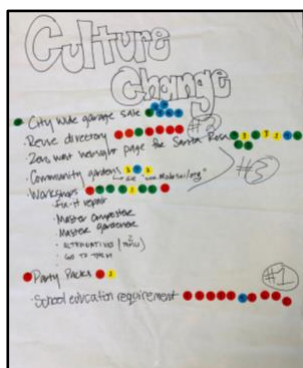 Culture
Change
· City wide garage sale
· Reuse directory #2
· Zero waste page for Santa Rosa
· Community gardens
· Workshops #3
· Fix-it repair
· Master composter
· Master gardener
· ALTERNATIVES
· GO TO THEM
Party Packs #1
· School education requirement